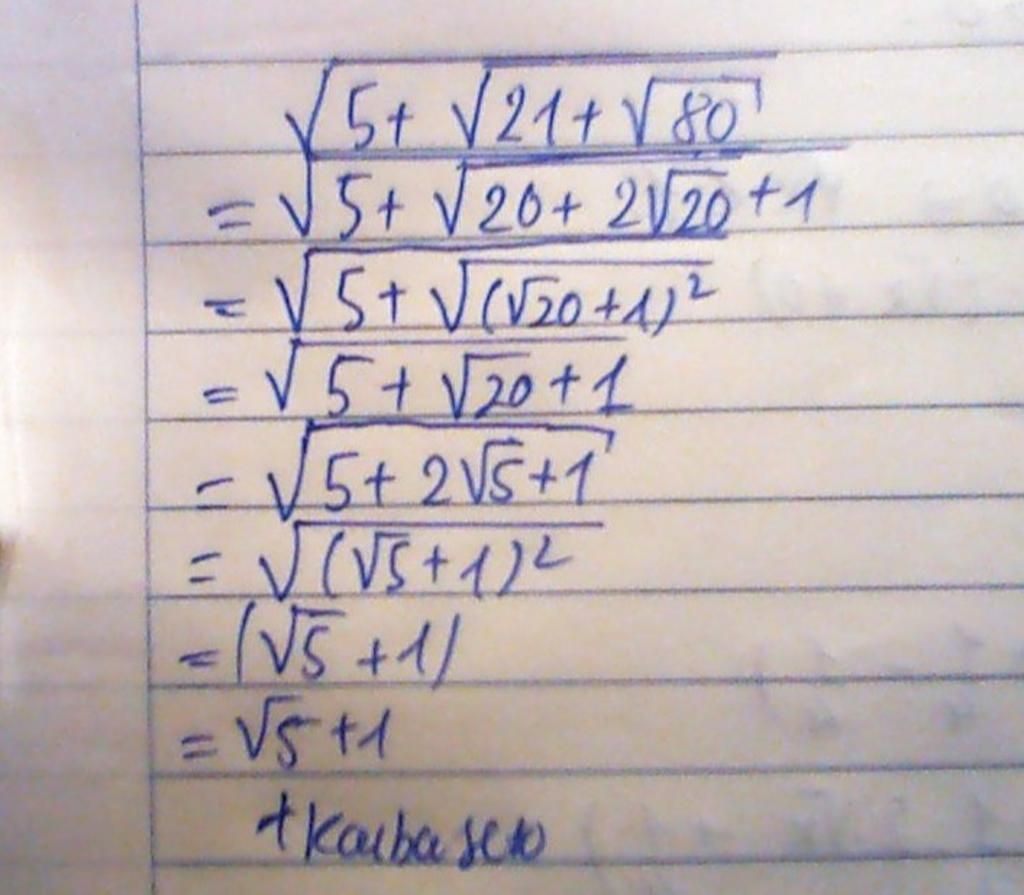 √(5+ √(21+ √80))
= √(5+ √(20+ 2√20 +1))
= √(5+ √((√20 +1)²))
= √(5 + √20 +1)
= √(5+ 2√5 +1)
= √((√5 +1)²)
= (√5 +1)
= √5 +1